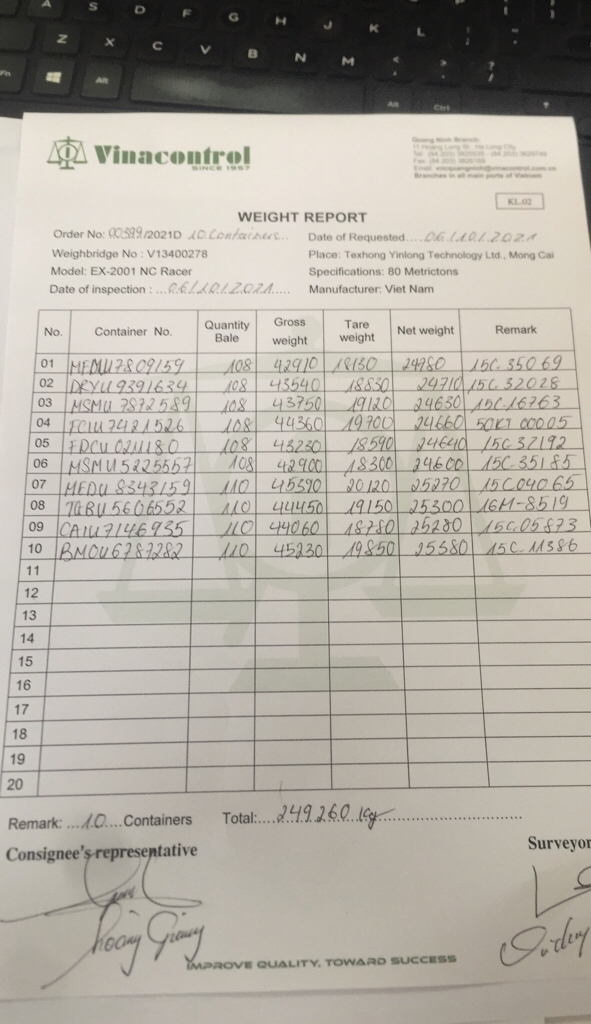 A S D F G H J K L
Z X C V B N M
Fn Alt Alt Ctrl
Vinacontrol
SINCE 1957
Quang Ninh Branch
Branches in all main parts of Vietnam
KL.02
WEIGHT REPORT
Order No: 00399/2021D 10 Containers... Date of Requested....06/10/2021
Weighbridge No : V13400278 Place: Texhong Yinlong Technology Ltd., Mong Cai
Model: EX-2001 NC Racer Specifications: 80 Metrictons
Date of inspection : ...06/10/2021..... Manufacturer: Viet Nam
No. Container No. Quantity Bale Gross weight Tare weight Net weight Remark
01 MEDU7809159 108 42910 18130 24780 15C.35069
02 DRYU9391634 108 43540 18830 24710 15C.32028
03 MSMU 7872589 108 43750 19120 24630 15C.16763
04 FCIU7421526 108 44360 19700 24660 50KT 00005
05 108 43230 18590 24640 15C.32192
06 MSMU5225557 108 42900 18300 24600 15C.35185
07 MEDU8343159 110 45390 20120 25270 15C04065
08 TGBU5606552 110 44450 19150 25300 16M-8519
09 CAIU7146935 110 44060 18780 25280 15C.05873
10 BMOU6787282 110 45230 19850 25380 15C.11386
11
12
13
14
15
16
17
18
19
20
Remark: ...10....Containers Total:....249.260 kg..............................
Consignee's representative Surveyor
Hoàng Giang
IMPROVE QUALITY, TOWARD SUCCESS